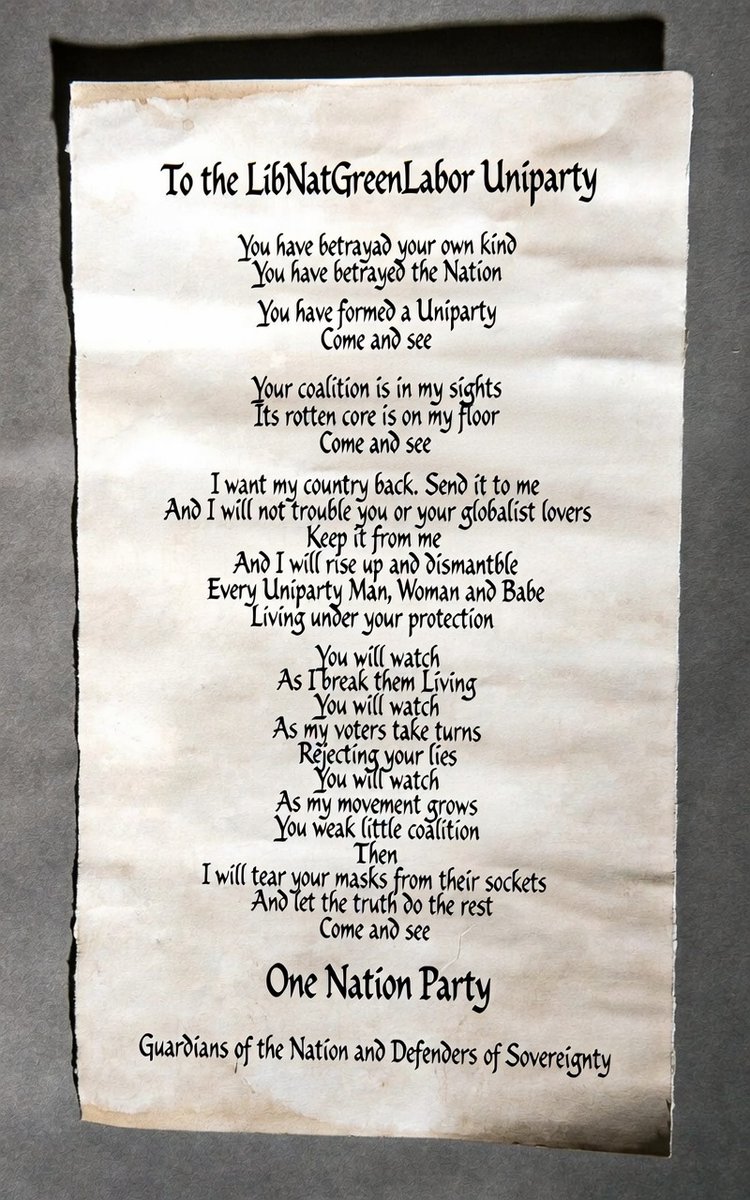 To the LibNatGreenLabor Uniparty
You have betrayad your own kind
You have betrayed the Nation
You have formed a Uniparty
Come and see
Your coalition is in my sights
Its rotten core is on my floor
Come and see
I want my country back. Send it to me
And I will not trouble you or your globalist lovers
Keep it from me
And I will rise up and dismantble
Every Uniparty Man, Woman and Babe
Living under your protection
You will watch
As I break them Living
You will watch
As my voters take turns
Rejecting your lies
You will watch
As my movement grows
You weak little coalition
Then
I will tear your masks from their sockets
And let the truth do the rest
Come and see
One Nation Party
Guardians of the Nation and Defenders of Sovereignty